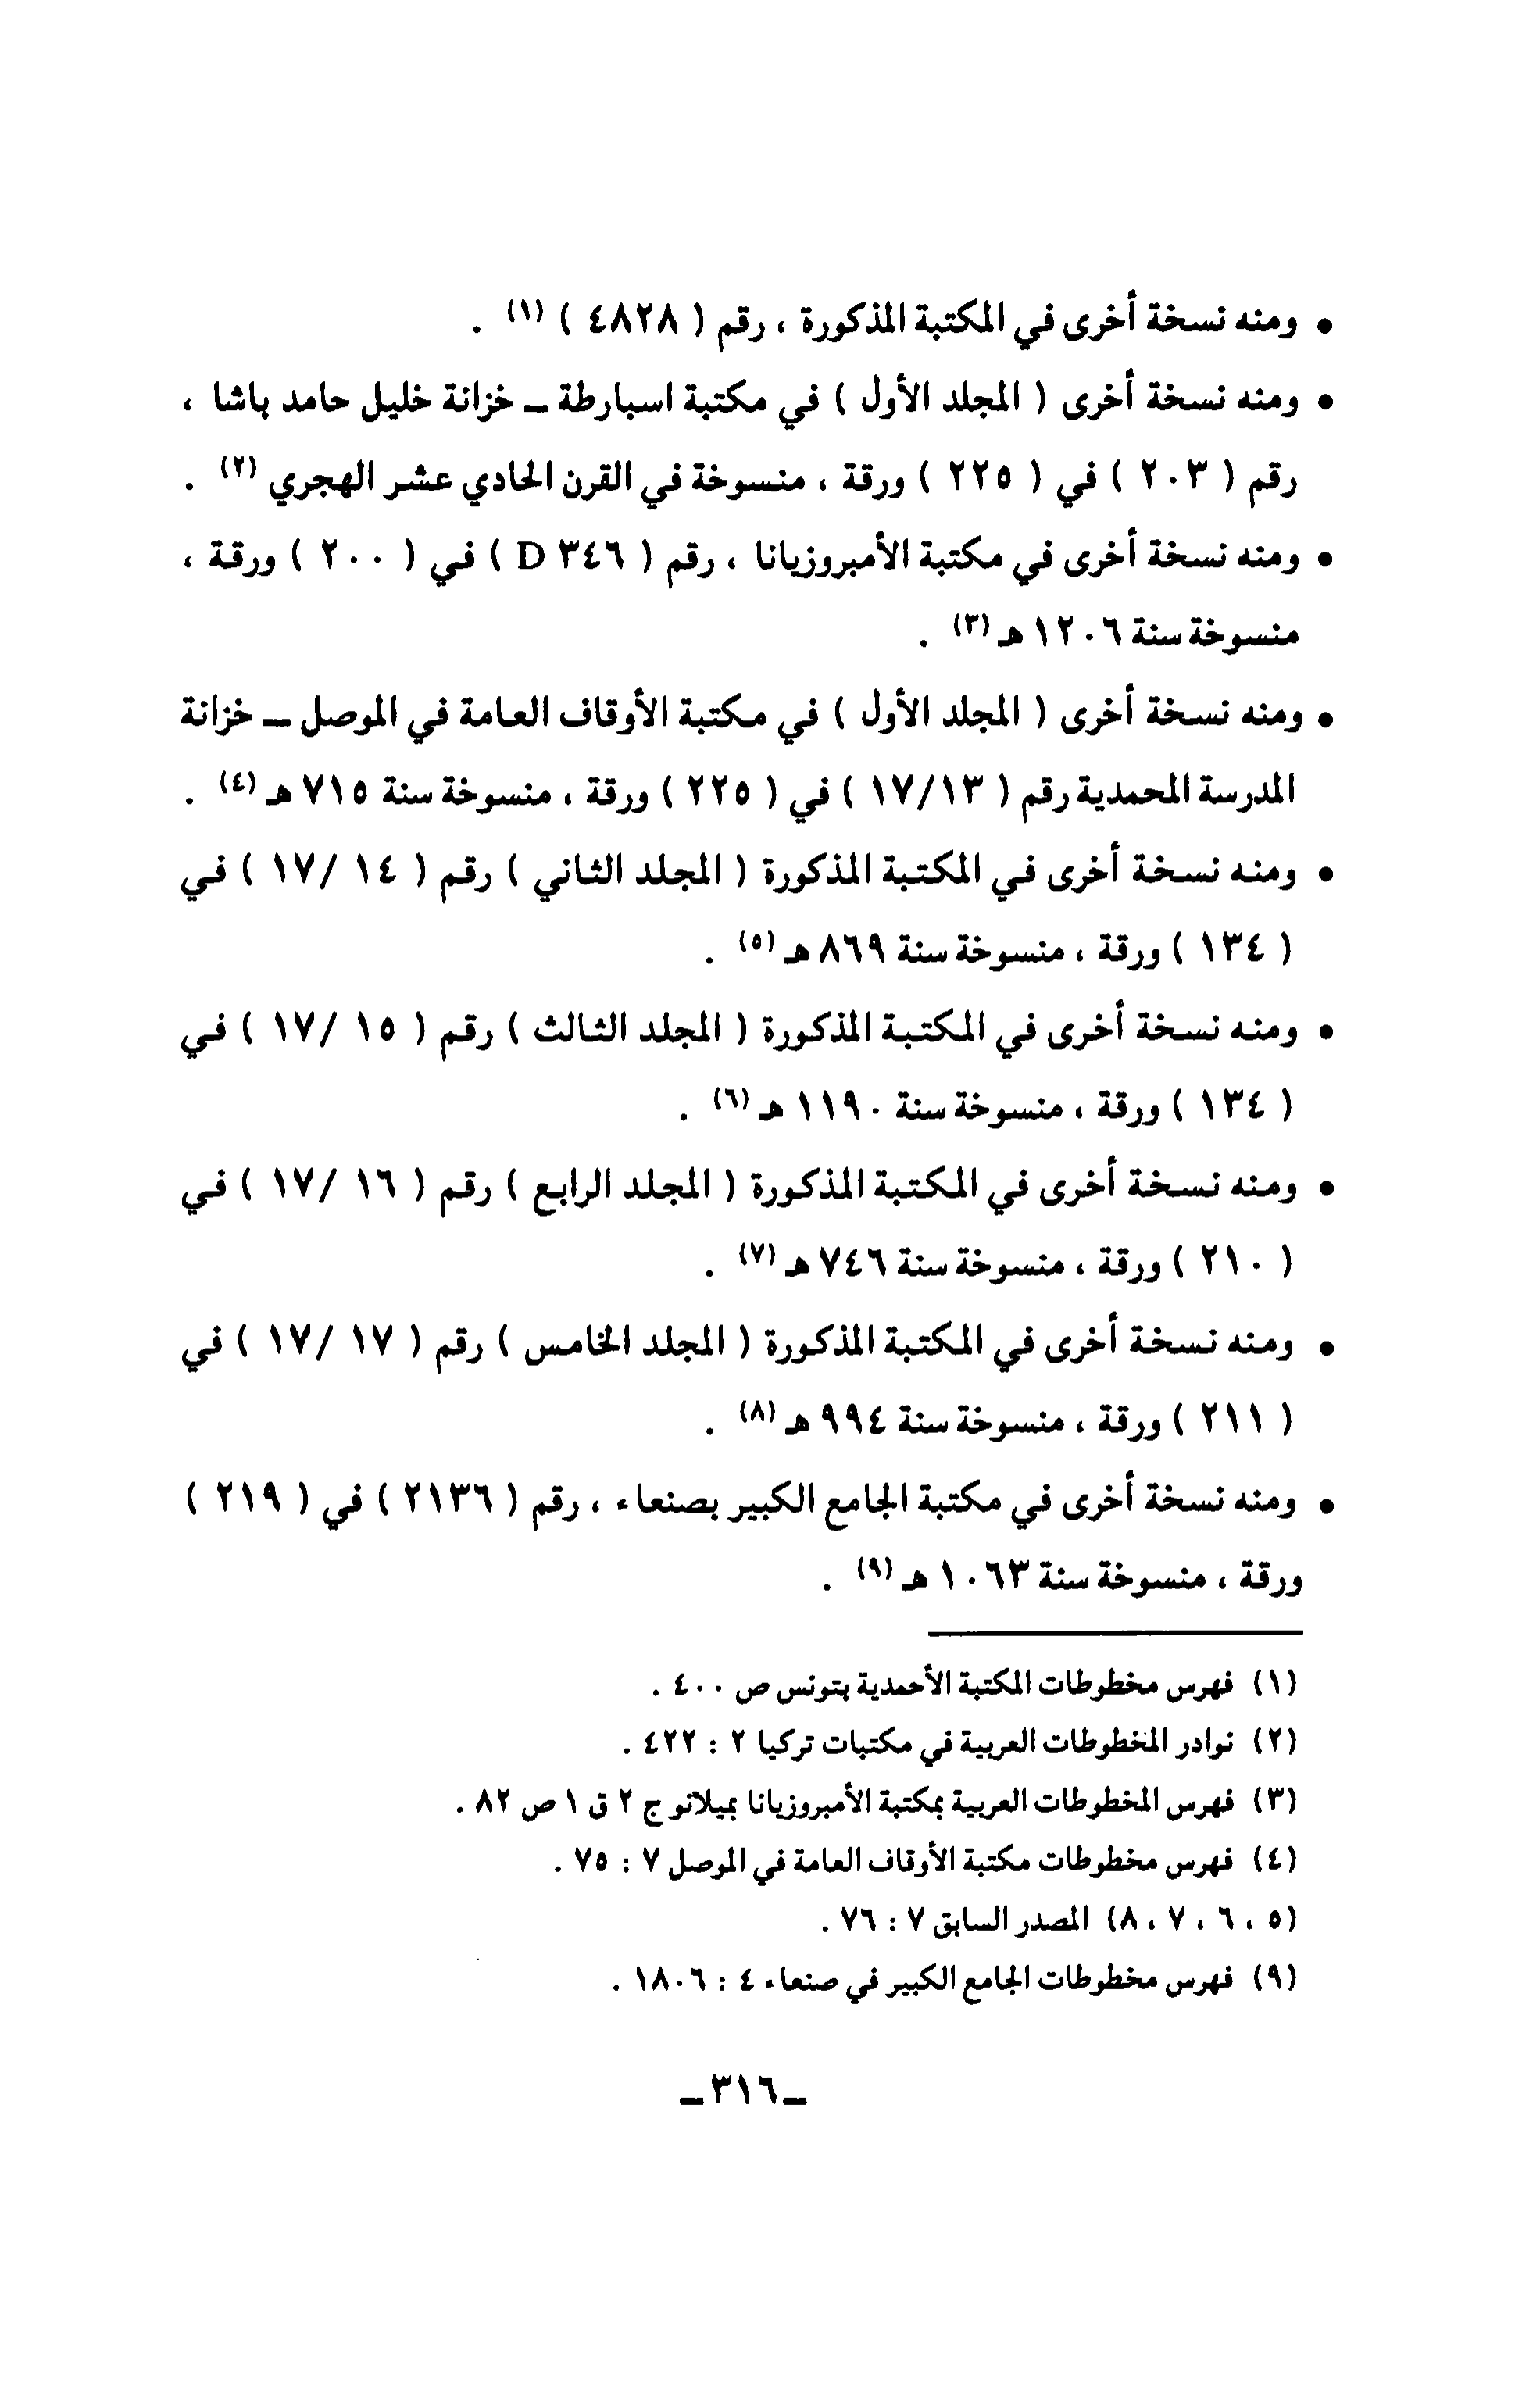 • ومنه نسخة أخرى في المكتبة المذكورة ، رقم ( ٤٨٢٨ ) (١) .
• ومنه نسخة أخرى ( المجلد الأول ) في مكتبة اسبارطة ــ خزانة خليل حامد باشا ،
رقم ( ٢٠٣ ) في ( ٢٢٥ ) ورقة ، منسوخة في القرن الحادي عشر الهجري (٢) .
• ومنه نسخة أخرى في مكتبة الأمبروزيانا ، رقم ( ٣٤٦ D ) في ( ٢٠٠ ) ورقة ،
منسوخة سنة ١٢٠٦ هـ (٣) .
• ومنه نسخة أخرى ( المجلد الأول ) في مكتبة الأوقاف العامة في الموصل ــ خزانة
المدرسة المحمدية رقم ( ١٧/١٣ ) في ( ٢٢٥ ) ورقة ، منسوخة سنة ٧١٥ هـ (٤) .
• ومنه نسخة أخرى في المكتبة المذكورة ( المجلد الثاني ) رقم ( ١٤ /١٧ ) في
( ١٣٤ ) ورقة ، منسوخة سنة ٨٦٩ هـ (٥) .
• ومنه نسخة أخرى في المكتبة المذكورة ( المجلد الثالث ) رقم ( ١٥ /١٧ ) في
( ١٣٤ ) ورقة ، منسوخة سنة ١١٩٠ هـ (٦) .
• ومنه نسخة أخرى في المكتبة المذكورة ( المجلد الرابع ) رقم ( ١٦ /١٧ ) في
( ٢١٠ ) ورقة ، منسوخة سنة ٧٤٦ هـ (٧) .
• ومنه نسخة أخرى في المكتبة المذكورة ( المجلد الخامس ) رقم ( ١٧ /١٧ ) في
( ٢١١ ) ورقة ، منسوخة سنة ٩٩٤ هـ (٨) .
• ومنه نسخة أخرى في مكتبة الجامع الكبير بصنعاء ، رقم ( ٢١٣٦ ) في ( ٢١٩ )
ورقة ، منسوخة سنة ١٠٦٣ هـ (٩) .
(١) فهرس مخطوطات المكتبة الأحمدية بتونس ص ٤٠٠ .
(٢) نوادر المخطوطات العربية في مكتبات تركيا ٢ : ٤٢٢ .
(٣) فهرس المخطوطات العربية بمكتبة الأمبروزيانا بميلانو ج ٢ ق ١ ص ٨٢ .
(٤) فهرس مخطوطات مكتبة الأوقاف العامة في الموصل ٧ : ٧٥ .
(٥ ، ٦ ، ٧ ، ٨) المصدر السابق ٧ : ٧٦ .
(٩) فهرس مخطوطات الجامع الكبير في صنعاء ٤ : ١٨٠٦ .
ــ ٣١٦ ــ